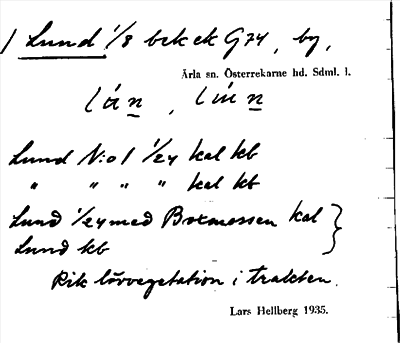 1 Lund 1/8 bek ek G74, by,
Ärla sn. Österrekarne hd. Sdml. l.
lán, lún
Lund N:o 1 1/24 kal kb
" " " " kal kb
Lund 1/24 med Botmossen kal }
Lund kb
Rik lövvegetation i trakten.
Lars Hellberg 1935.